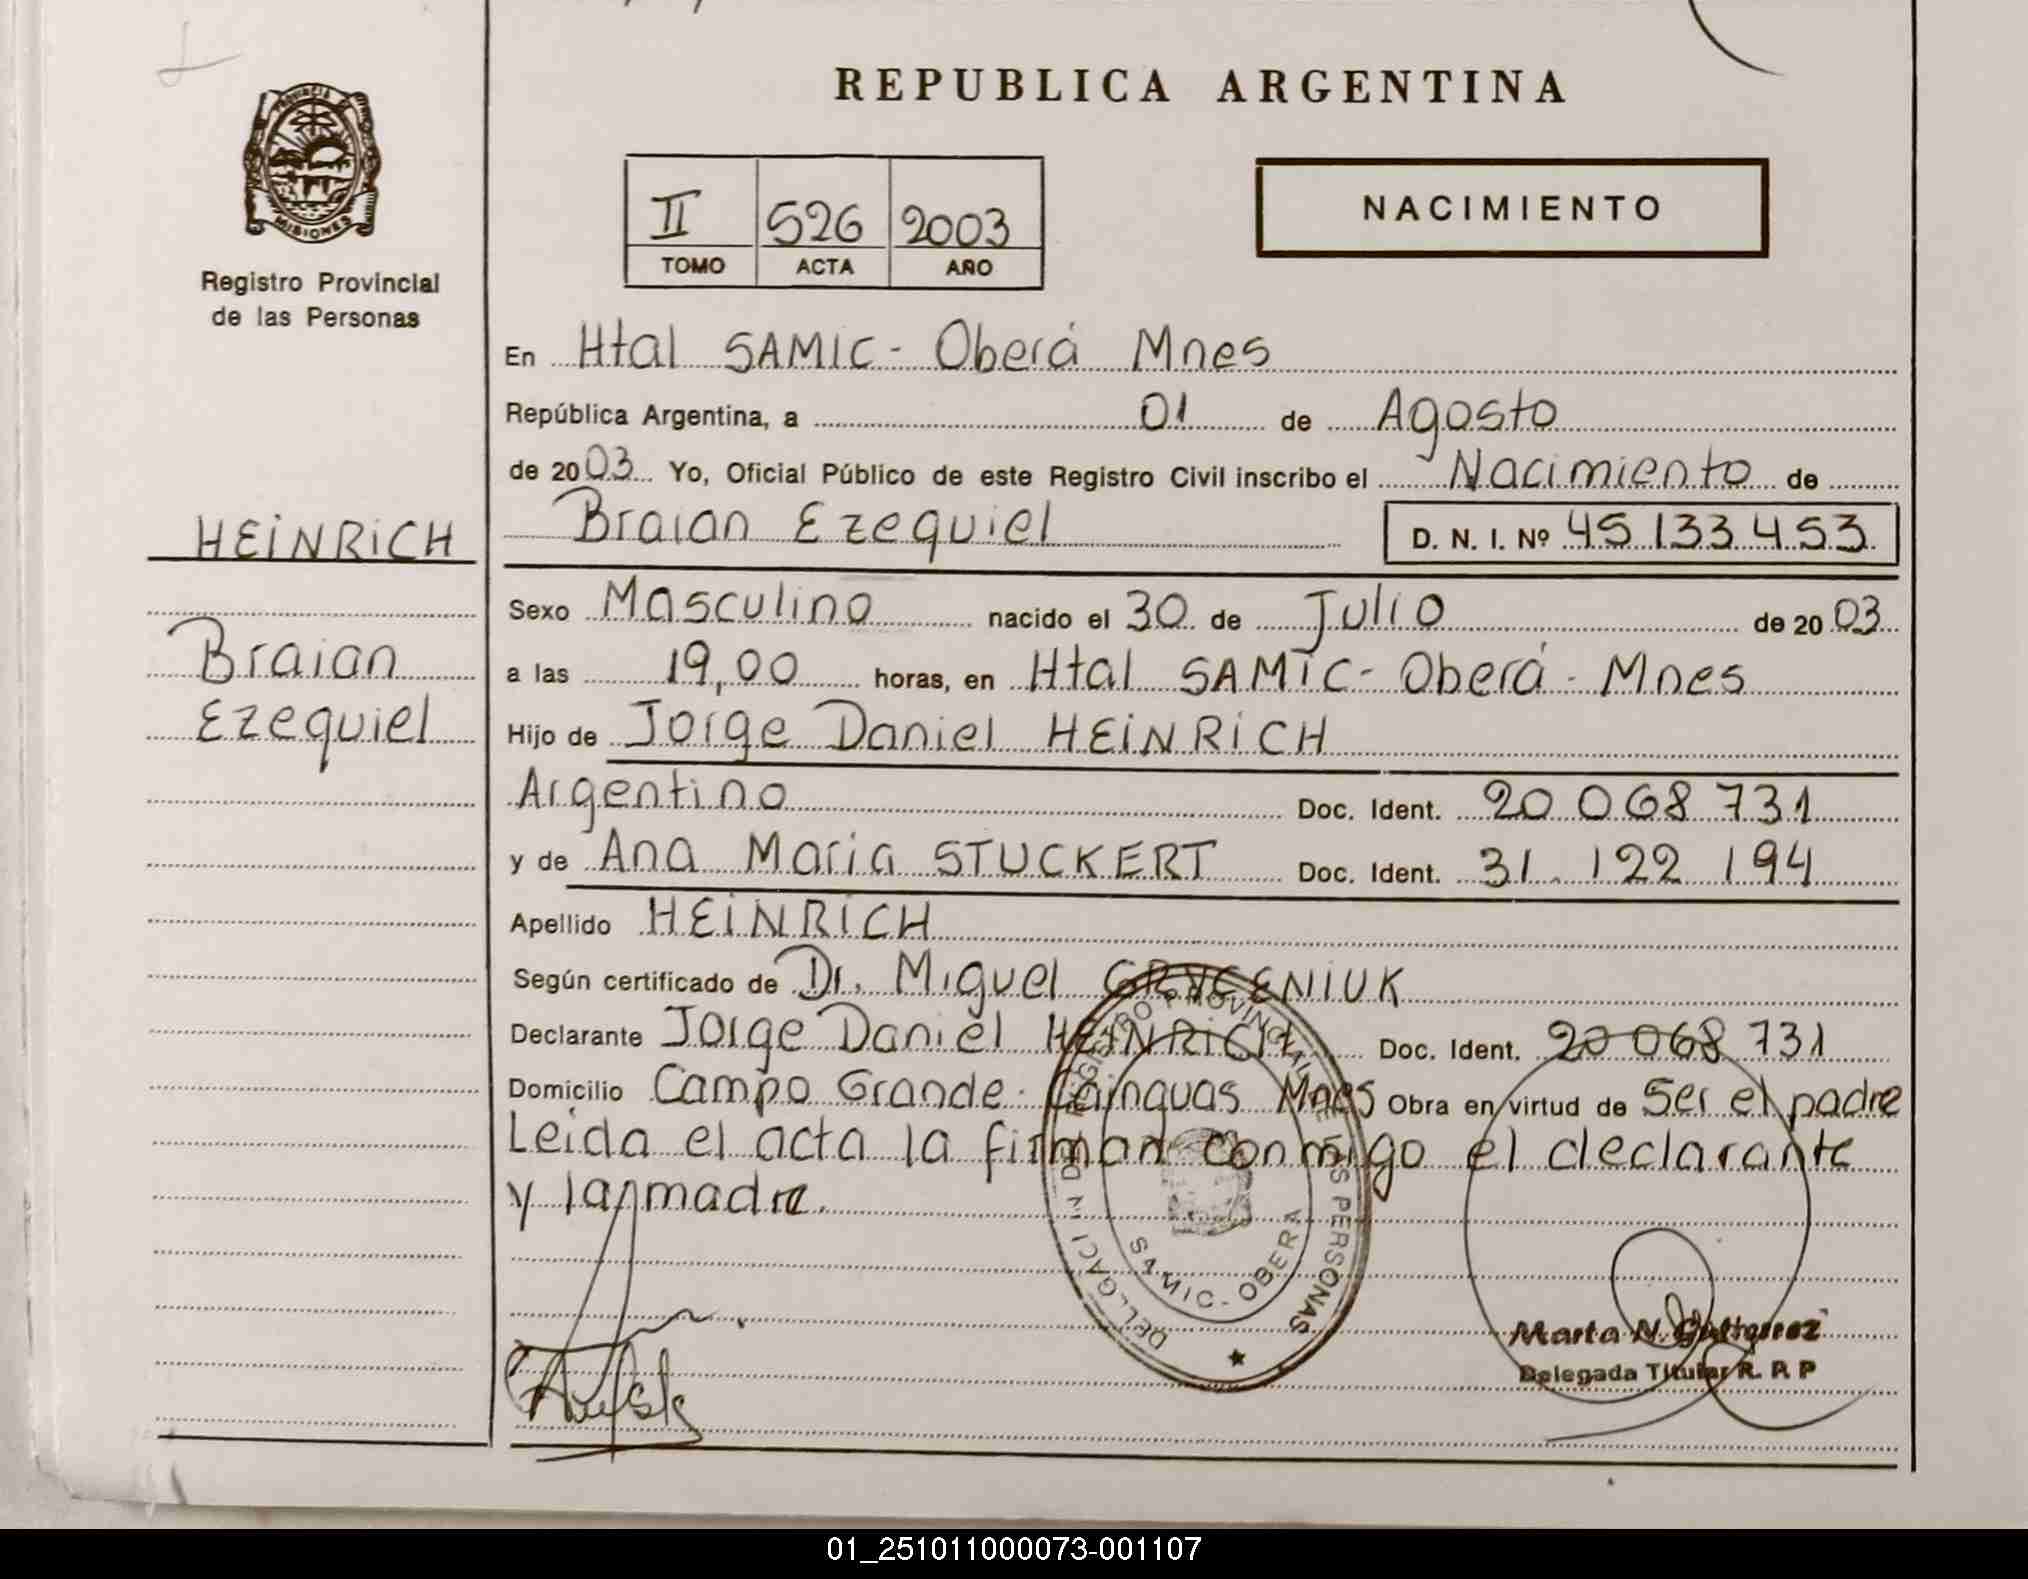 REPUBLICA ARGENTINA
PROVINCIA DE MISIONES
Registro Provincial
de las Personas
II 526 2003
TOMO ACTA AÑO
NACIMIENTO
En Htal SAMIC - Oberá Mnes
República Argentina, a 01 de Agosto
de 2003 Yo, Oficial Público de este Registro Civil inscribo el Nacimiento de
Braian Ezequiel D. N. I. Nº 45 133 453
HEiNRiCH
Braian
Ezequiel
Sexo Masculino nacido el 30 de Julio de 2003
a las 19,00 horas, en Htal SAMiC - Oberá - Mnes
Hijo de Jorge Daniel HEiNRiCH
Argentino Doc. Ident. 20 068 731
y de Ana Maria STUCKERT Doc. Ident. 31.122 194
Apellido HEiNRiCH
Según certificado de Dr. Miguel GRYCENIUK
Declarante Jorge Daniel HEiNRiCH Doc. Ident. 20 068 731
Domicilio Campo Grande - Cainguas Mnes Obra en virtud de Ser el padre
Leida el acta la firman conmigo el declarante
y la madre.
DELEGACION DEL REGISTRO PROVINCIAL DE LAS PERSONAS
SAMIC - OBERA
Marta N. Gutierrez
Delegada Titular R. P. P
01_251011000073-001107